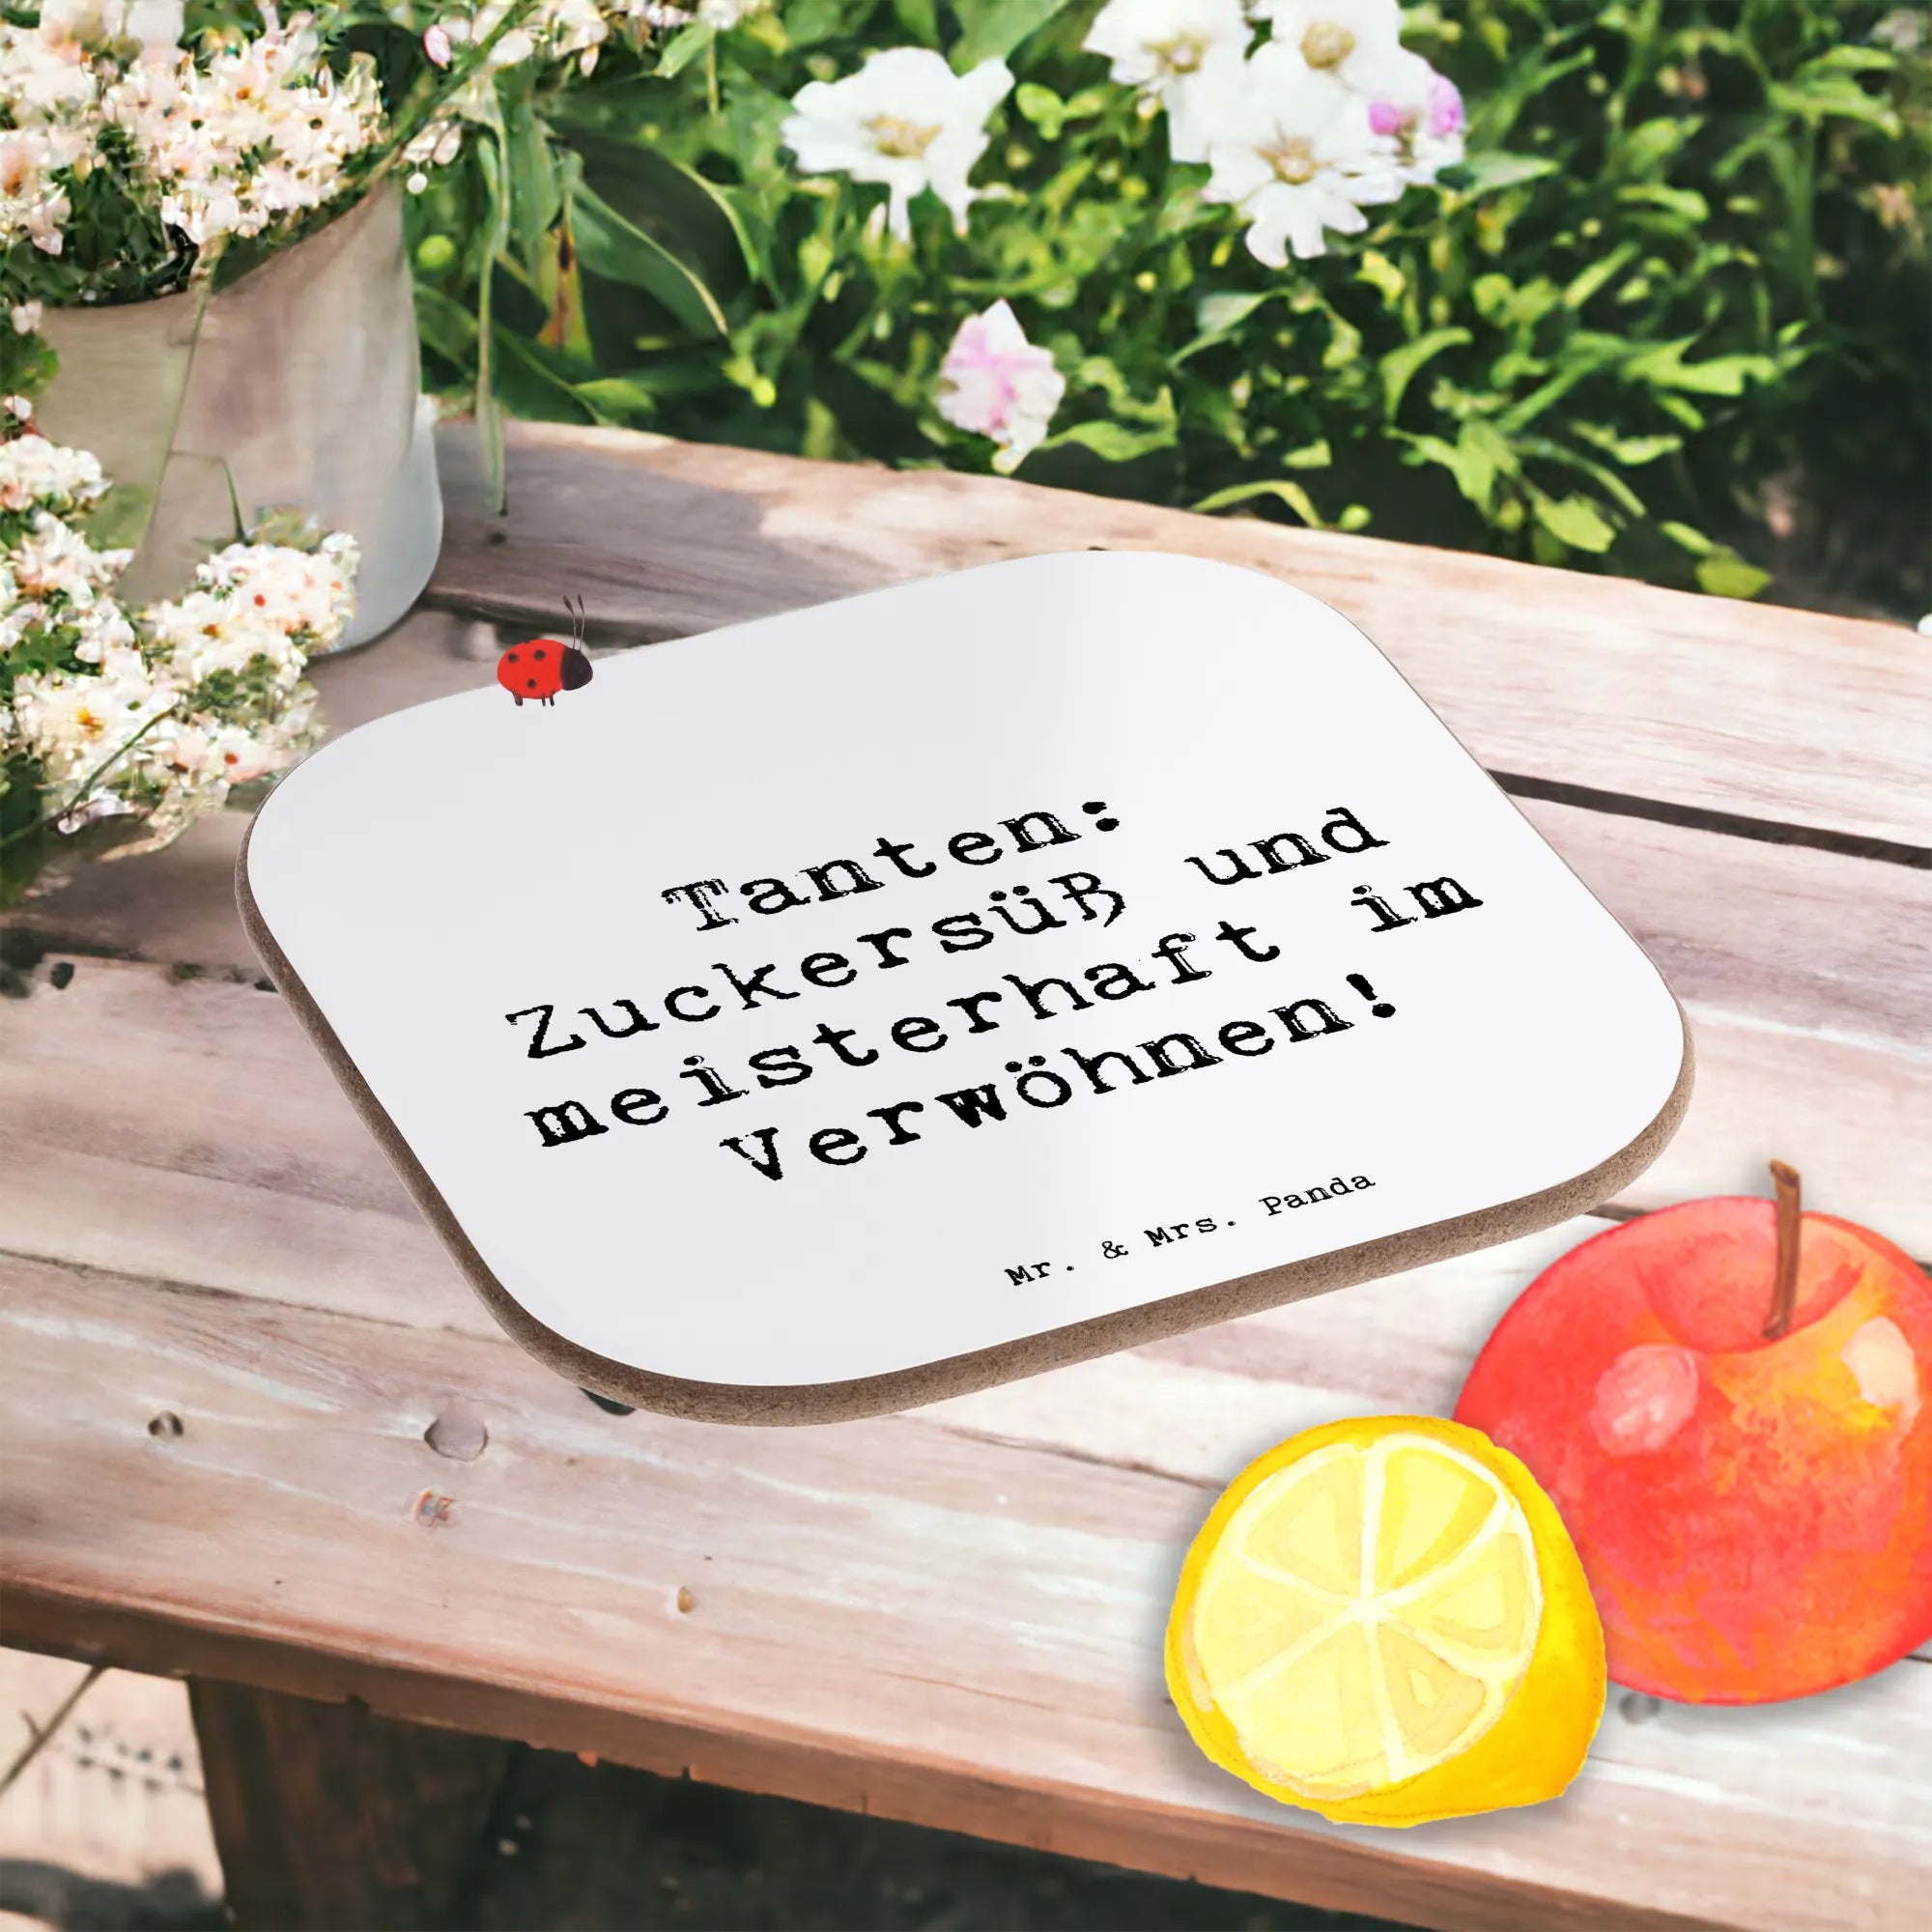 Tanten:
Zuckersüß und
meisterhaft im
Verwöhnen!
Mr. & Mrs. Panda